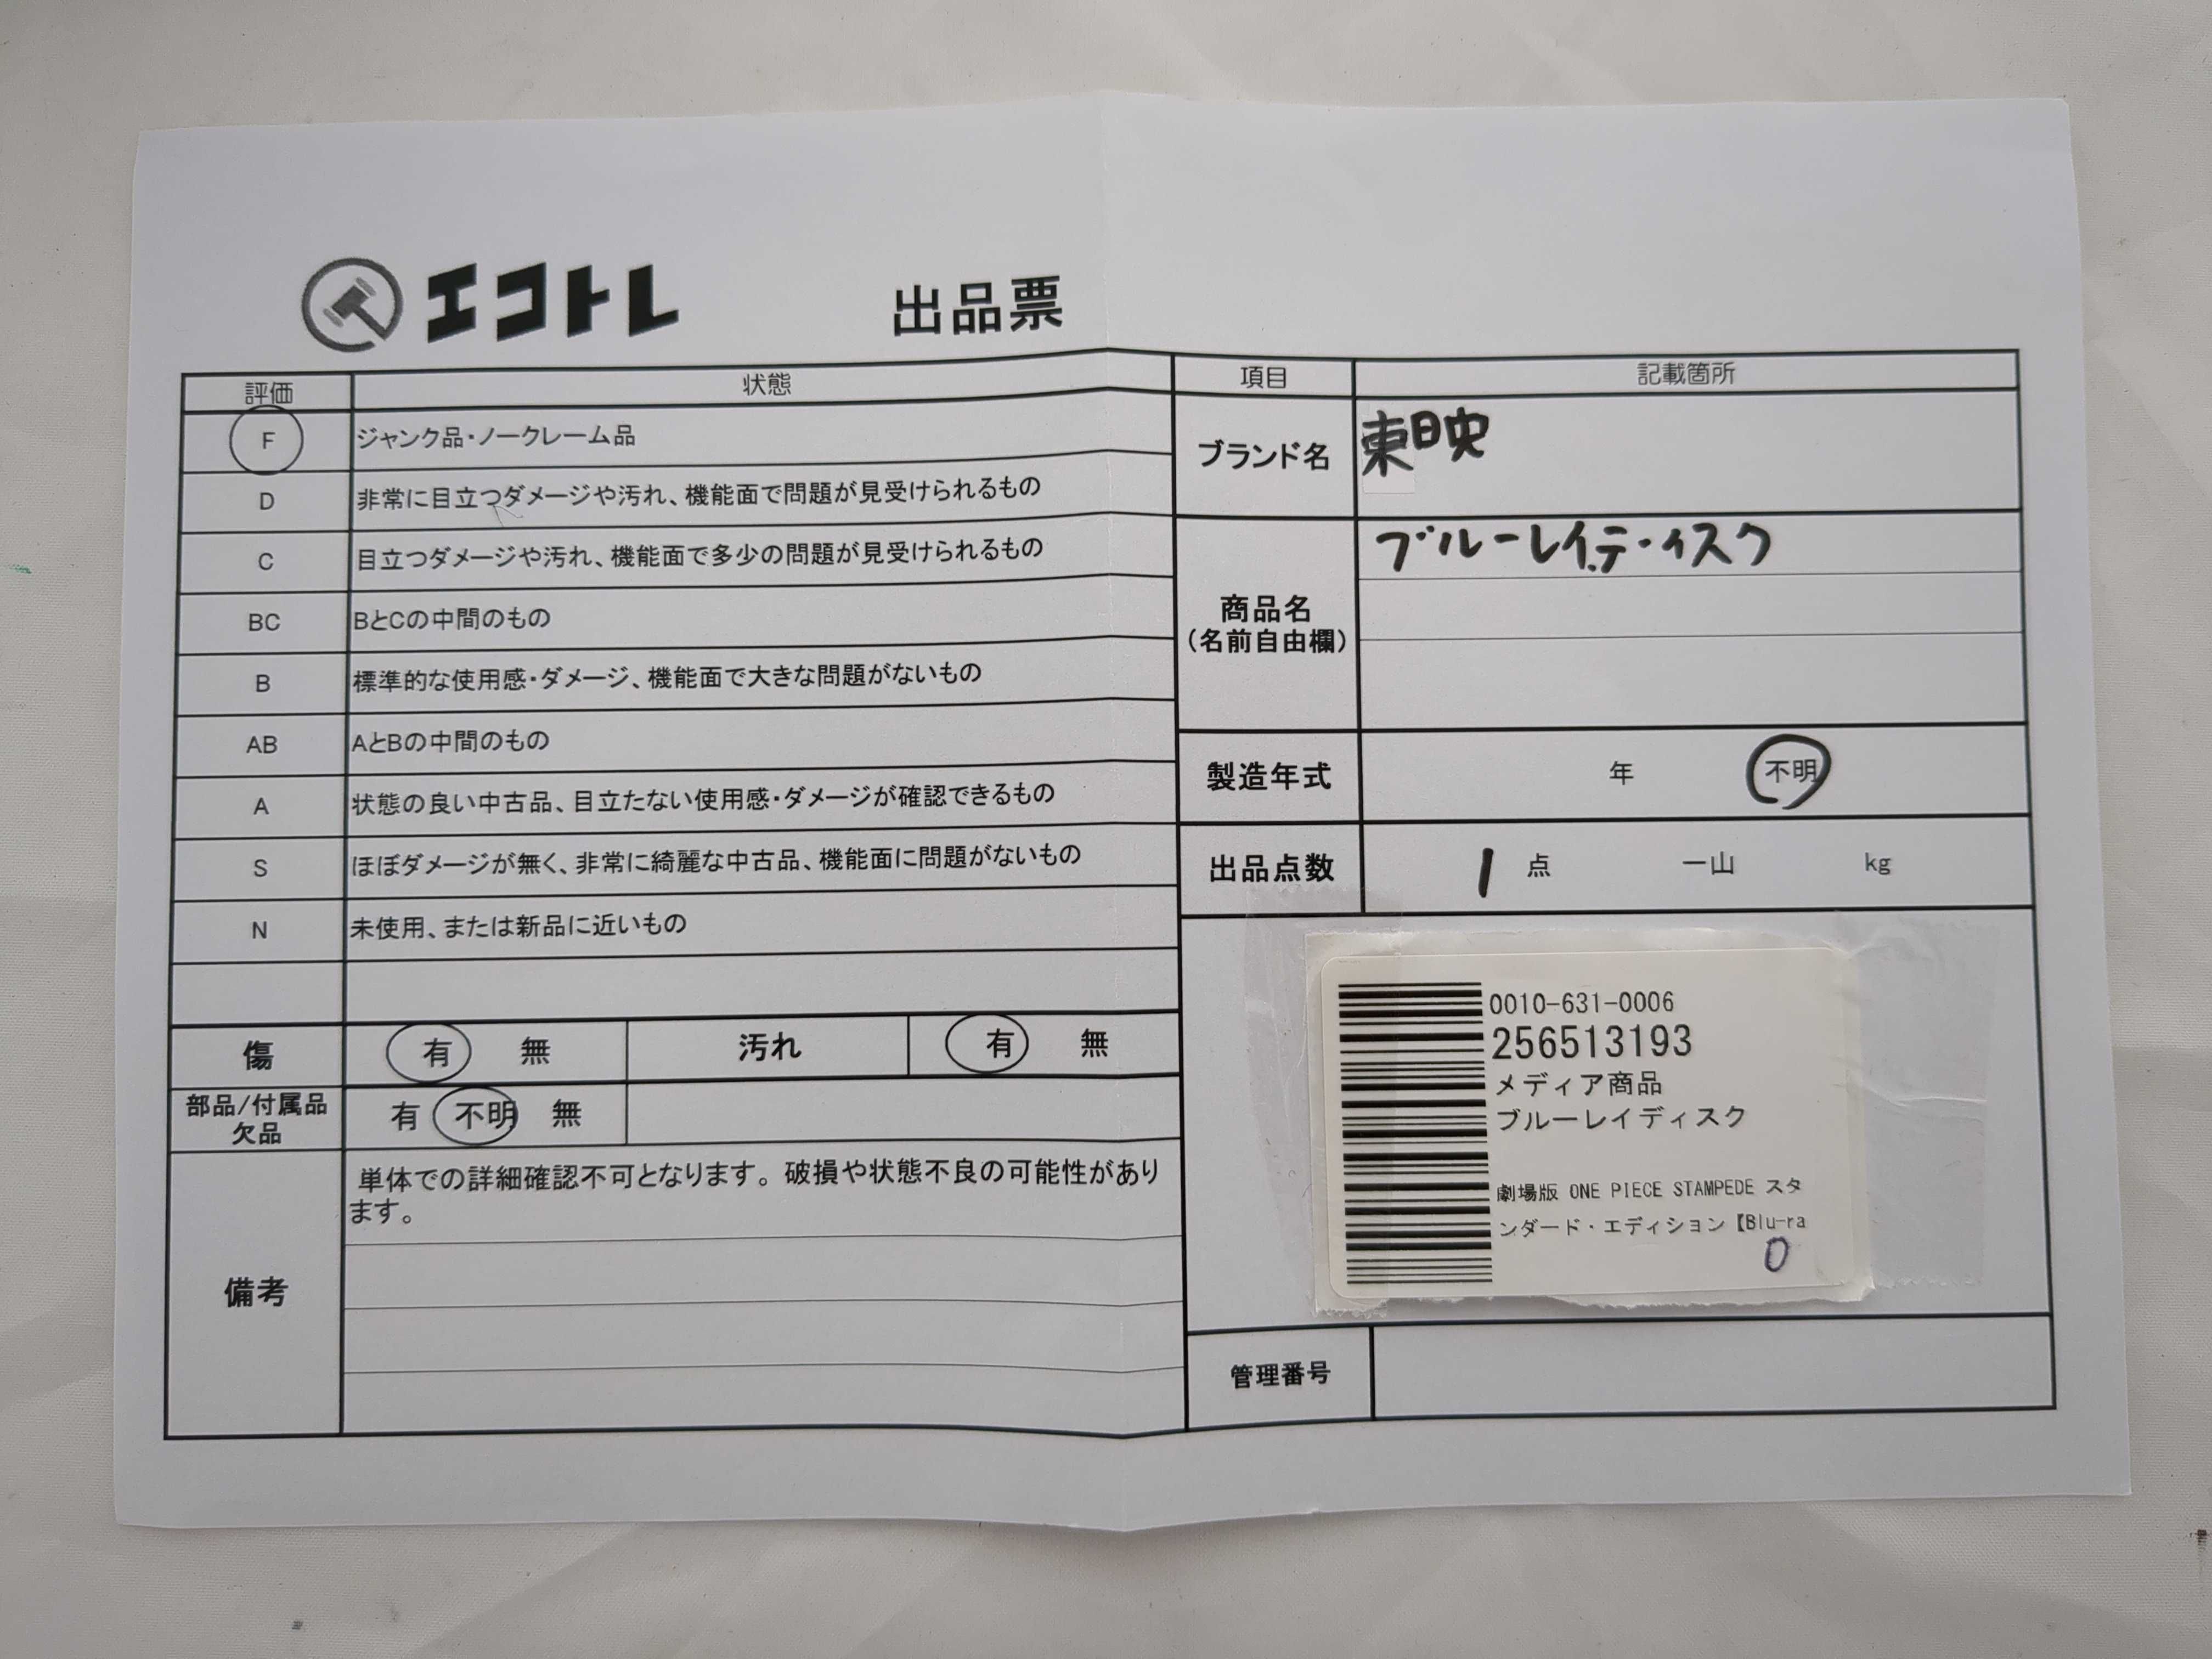 エコトレ
出品票
評価 状態
F ジャンク品・ノークレーム品
D 非常に目立つダメージや汚れ、機能面で問題が見受けられるもの
C 目立つダメージや汚れ、機能面で多少の問題が見受けられるもの
BC BとCの中間のもの
B 標準的な使用感・ダメージ、機能面で大きな問題がないもの
AB AとBの中間のもの
A 状態の良い中古品、目立たない使用感・ダメージが確認できるもの
S ほぼダメージが無く、非常に綺麗な中古品、機能面に問題がないもの
N 未使用、または新品に近いもの
傷 有 無 汚れ 有 無
部品/付属品
欠品
有 不明 無
備考
単体での詳細確認不可となります。破損や状態不良の可能性があり
ます。
項目 記載箇所
ブランド名 東映
商品名
(名前自由欄)
ブルーレイディスク
製造年式 年 不明
出品点数 1 点 一山 kg
0010-631-0006
256513193
メディア商品
ブルーレイディスク
劇場版 ONE PIECE STAMPEDE スタ
ンダード・エディション【Blu-ra
0
管理番号